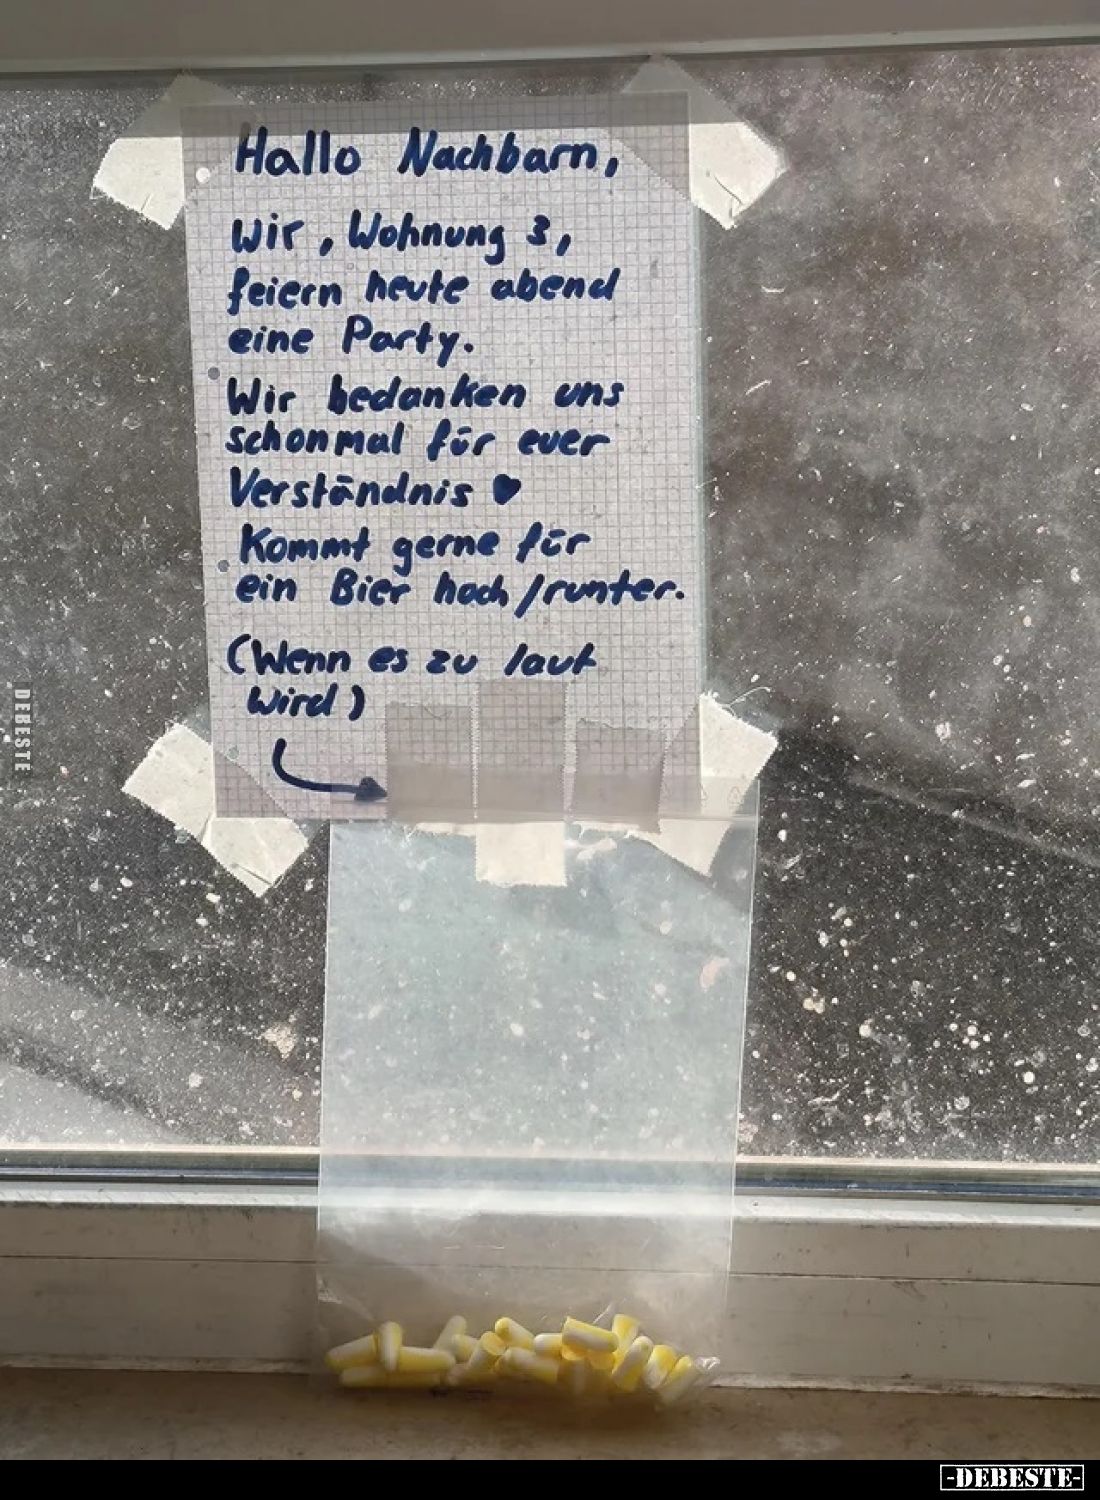 Hallo Nachbarn,
Wir, Wohnung 3,
feiern heute abend
eine Party.
Wir bedanken uns
schonmal für euer
Verständnis ♥
Kommt gerne für
ein Bier hoch/runter.
(Wenn es zu laut
wird)
DEBESTE
-DEBESTE-